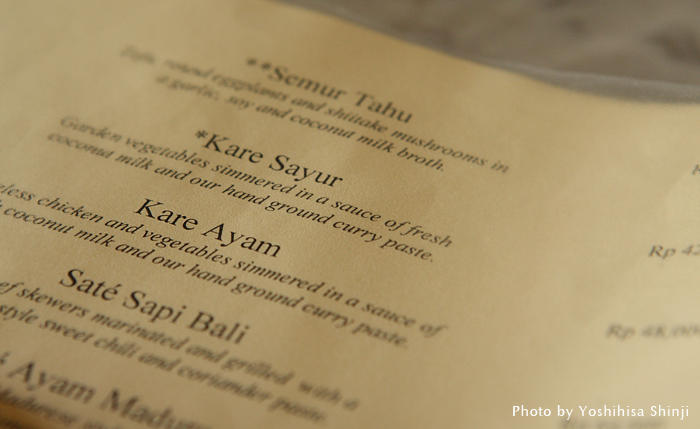 **Semur Tahu
Tofu, round eggplants and shiitake mushrooms in
a garlic, soy and coconut milk broth.
*Kare Sayur
Garden vegetables simmered in a sauce of fresh
coconut milk and our hand ground curry paste.
Kare Ayam
chicken and vegetables simmered in a sauce of
coconut milk and our hand ground curry paste.
Rp 42
Saté Sapi Bali
skewers marinated and grilled with a
style sweet chili and coriander paste.
Rp 48,000
Ayam Madura
Photo by Yoshihisa Shinji